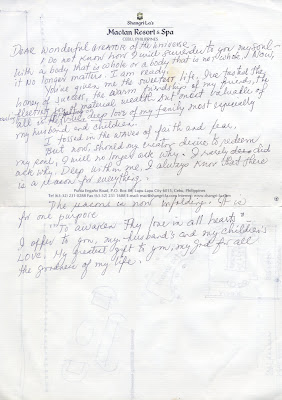 Shangri-La's
Mactan Resort & Spa
CEBU, PHILIPPINES
Dear Wonderful Creator of the Universe,
I do not know how I will surrender to you my soul -
with a body that is whole or a body that is not whole. Now,
it no longer matters. I am ready.
You've given me the sweetest life, I've tasted the
honey of success, the warm friendship of my friends, the
material wealth but most valuable of
all is the love of my family most especially
my husband and children.
I tossed in the waves of faith and fear,
But now, should my creator desire to redeem
my soul, I will no longer ask why. I rarely dared
ask why. Deep within me, I always knew that there
is a reason for everything.
Punta Engaño Road, P.O. Box 86, Lapu-Lapu City 6015, Cebu, Philippines
The reason is now unfolding. It is
for one purpose
"To awaken Thy love in all hearts".
I offer to you, my husband's and my children's
Love. My greatest gift to you, my God for all
the goodness of my life.